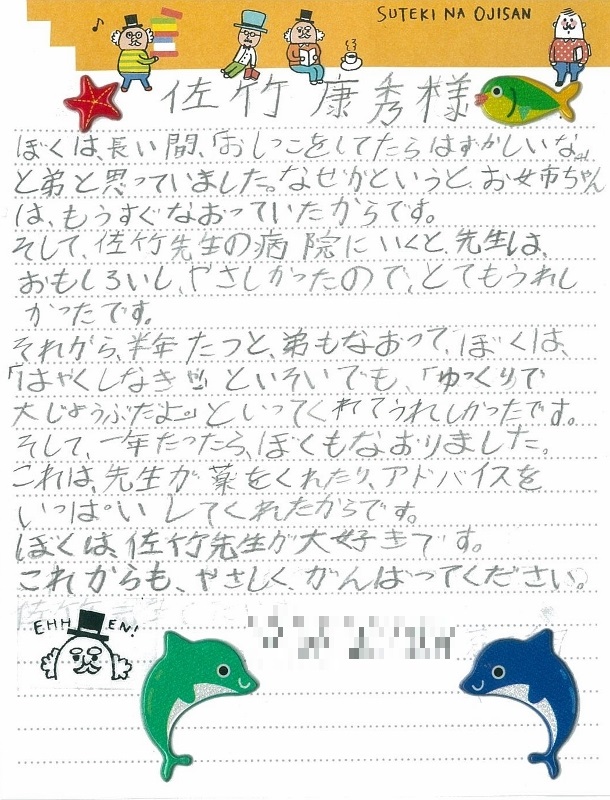 SUTEKI NA OJISAN
佐竹 康秀様
ぼくは、長い間、「おしっこをしてたらはずかしいな。」
と弟と思っていました。なぜかというと、お姉ちゃん
は、もうすぐなおっていたからです。
そして、佐竹先生の病院にいくと、先生は、
おもしろいし、やさしかったので、とてもうれし
かったです。
それから、半年たつと、弟もなおって、ぼくは、
「はやくしなきゃ」といそいでも、「ゆっくりで
大じょうぶだよ。」といってくれてうれしかったです。
そして、一年たったら、ぼくもなおりました。
これは、先生が薬をくれたり、アドバイスを
いっぱいしてくれたからです。
ぼくは、佐竹先生が大好きです。
これからも、やさしく、がんばってください。
EHH EN!